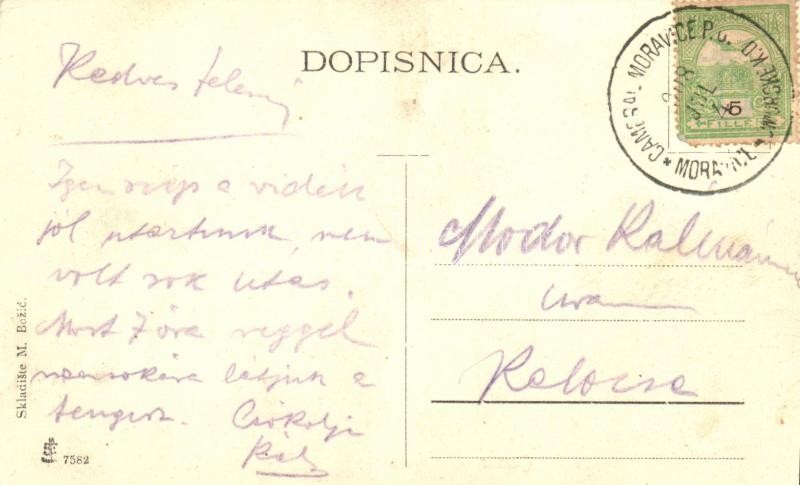 DOPISNICA.
Kedves felem
Igen szép a vidék
jól utaztunk, nem
volt sok utas.
Most 7 óra reggel
nemsokára látjuk a
tengert. Csókolja
Kál
Modor Kálmánné
Kalocsa
Skladište M. Božić.
7582
CAMERAL MORAVICE P.U.
MORAVICE
5
FILLÉR